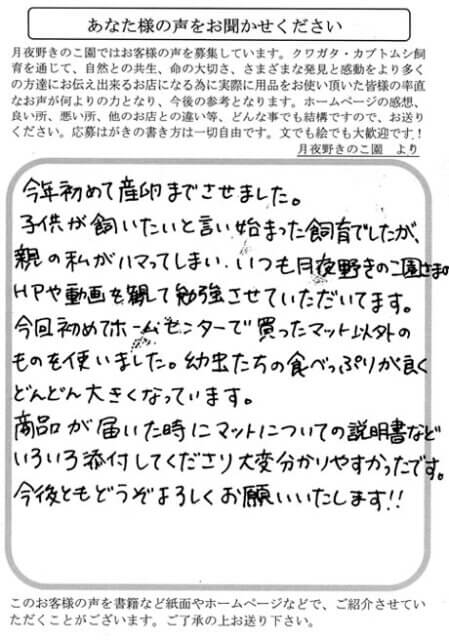 あなた様の声をお聞かせください
月夜野きのこ園ではお客様の声を募集しています。クワガタ・カブトムシ飼
育を通じて、自然との共生、命の大切さ、さまざまな発見と感動をより多く
の方達にお伝え出来るお店になる為に実際に用品をお使い頂いた皆様の率直
なお声が何よりの力となり、今後の参考となります。ホームページの感想、
良い所、悪い所、他のお店との違い等、どんな事でも結構ですので、お送り
ください。応募はがきの書き方は一切自由です。文でも絵でも大歓迎です！
月夜野きのこ園　より
今年初めて産卵までさせました。
子供が飼いたいと言い始まった飼育でしたが、
親の私がハマってしまい、いつも月夜野きのこ園さまの
HPや動画を観て勉強させていただいてます。
今回初めてホームセンターで買ったマット以外の
ものを使いました。幼虫たちの食べっぷりが良く
どんどん大きくなっています。
商品が届いた時にマットについての説明書など
いろいろ添付してくださり大変分かりやすかったです。
今後ともどうぞよろしくお願いいたします!!
このお客様の声を書籍など紙面やホームページなどで、ご紹介させてい
ただくことがございます。ご了承の上お送り下さい。